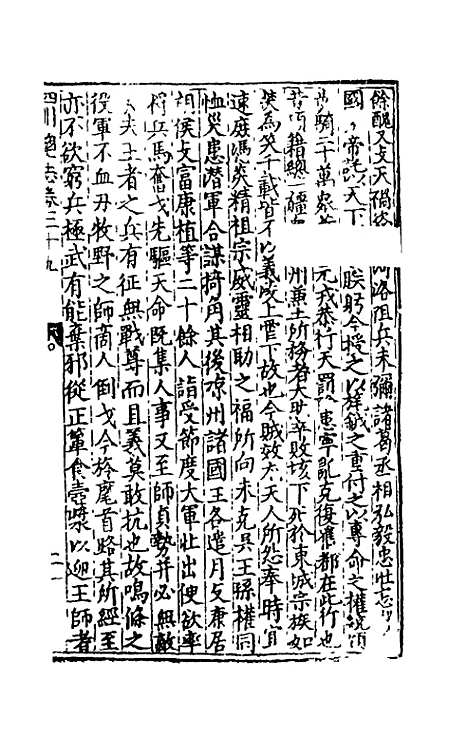 餘醜又支天禍恣河洛阻兵未彌諸葛丞相弘毅忠壯忘
國帝託以天下朕躬今授之以旄鉞之重付之以專命之權統領
步騎二十萬衆元戎恭行天罰患寧亂克復舊都在此行也
昔項籍總一疆州兼土所務者大卒敗垓下死於東城宗族如
焚為笑千載皆不以義陵上虐下故也今賊效尤天人所怨奉時宜
速庶馮炎精祖宗威靈相助之福所向未克吳王孫權同
恤災患潜軍合謀掎角其後凉州諸國王各遣月支康居
胡侯支富康植等二十餘人詣受節度大軍北出便欲率
將兵馬奮戈先驅天命既集人事又至師貞勢并必無敵
夫王者之兵有征無戰尊而且義莫敢抗也故鳴條之
役軍不血刃牧野之師商人倒戈今旍麾首路其所經至
亦不欲窮兵極武有能棄邪從正簞食壺漿以迎王師者
四川總志卷二十九